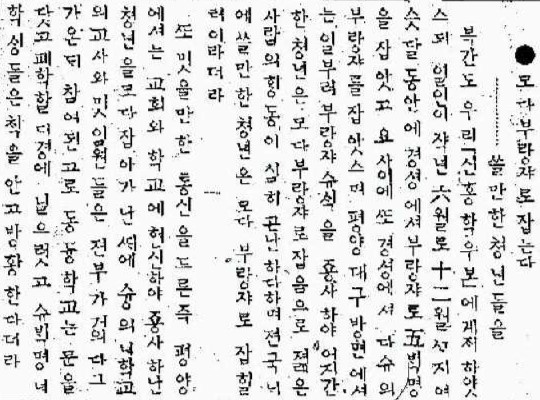 ●모다부랑쟈로잡는다
쓸만한쳥년들을
북간도 우리「신흥학우보」에게재하얏
스되 일인이작년六월로十二월신지여
슷달동안에경셩에셔부랑쟈로五빅명
을잡앗고요사이에또경셩에셔다슈의
부랑쟈를잡앗스며평양대구방면에셔
는일부러부랑쟈슈식을죵사하야여지간
한쳥년은모다부랑쟈로잡음으로졀은
사람의힝동이심히곤난하다하며젼국니
에쓸만한쳥년은모다부랑쟈로잡힐
려이라더라
또밋을만한통신을드른즉평양
에셔는교회와학교에헌신하야죵사하난
쳥년을모다잡아가난즁에슝의녀학교
의교사와밋임원들은젼부가거의다그
가온되참여된고로동학교는문을
닷고폐학할디경에닐으럿고슈빅명녀
학싱들은칙을안고방황한다더라